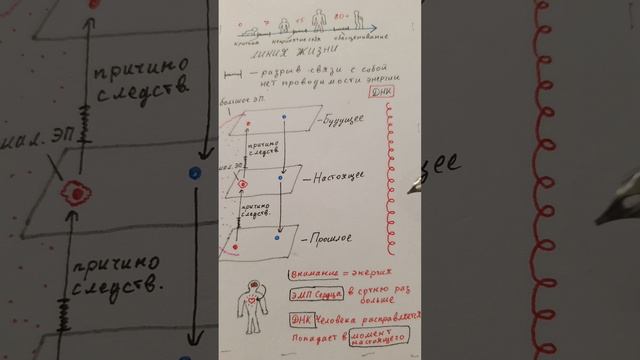 0 7 45 80+
критика неприятие себя обесценивание
ЛИНИЯ ЖИЗНИ
— разрыв связи с собой
нет проводимости энергии
большое ЭП.
ДНК
Будущее
причино
следств.
мал. ЭП
Настоящее
причино
следств.
Прошлое
Внимание = энергия
ЭМП Сердца в сотню раз
больше
ДНК Человека расправляется
Попадает в момент
настоящего
причино
следств.
мал. ЭП.
причино
следств.
щее